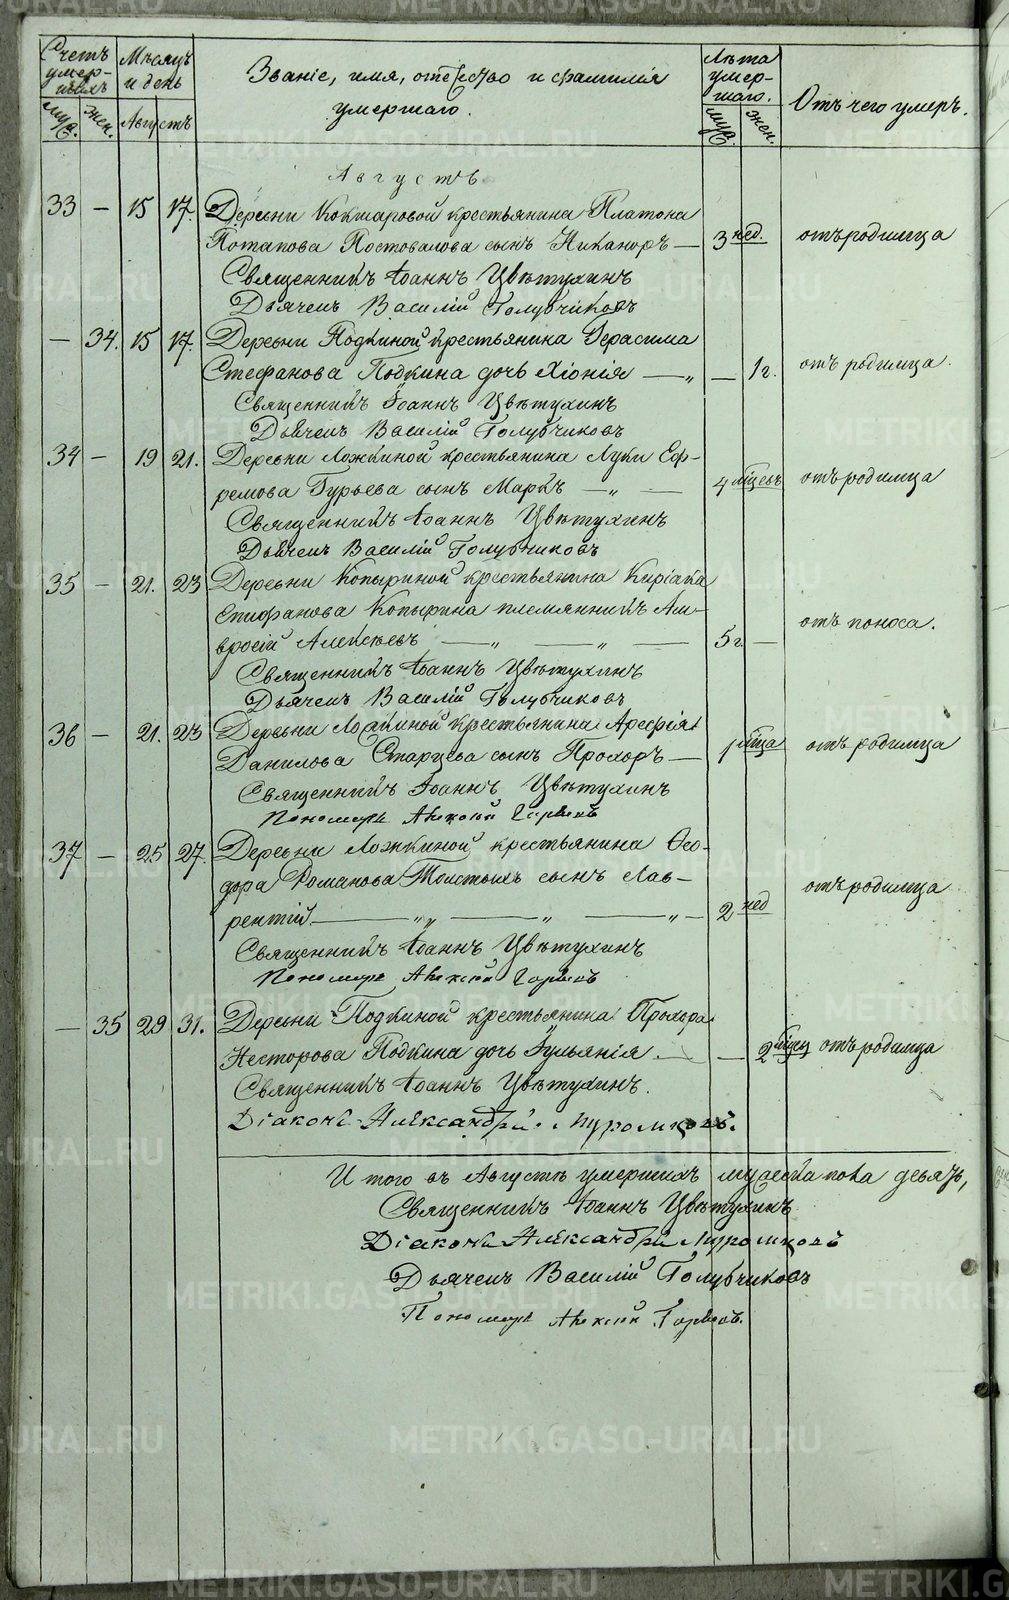 Счетъ умер-шихъ
Мѣсяцъ и день
Званіе, имя, отчество и фамилія умершаго.
Лѣта умер-шаго.
Отъ чего умеръ.
муж. жен. Августъ муж. жен.
Августъ
33 — 15 17. Деревни Кокшаровой крестьянина Платона
Потапова Постовалова сынъ Никаноръ — 3 нед. отъ родимца
Священникъ Іоаннъ Цвѣтухинъ
Дьячекъ Василій Голубчиковъ
— 34. 15 17. Деревни Подкиной крестьянина Герасима
Стефанова Подкина дочь Хіонія — „ — 1 г. отъ родимца.
Священникъ Іоаннъ Цвѣтухинъ
Дьячекъ Василій Голубчиковъ
34 — 19 21. Деревни Ложкиной крестьянина Луки Еф-
ремова Гурьева сынъ Маркъ — „ — 4 мѣсецъ отъ родимца
Священникъ Іоаннъ Цвѣтухинъ
Дьячекъ Василій Голубчиковъ
35 — 21. 23 Деревни Копыриной крестьянина Киріака
Епифанова Копырина племянникъ Ам-
вросій Алексѣевъ — „ — „ — 5 г. — отъ поноса.
Священникъ Іоаннъ Цвѣтухинъ
Дьячекъ Василій Голубчиковъ
36 — 21. 23 Деревни Ложкиной крестьянина Арефія
Данилова Старцева сынъ Прохоръ — 1 мѣца отъ родимца
Священникъ Іоаннъ Цвѣтухинъ
Пономарь Алексій
37 — 25 27. Деревни Ложкиной крестьянина Ѳео-
дора Романова Толстыхъ сынъ Лав-
рентій. — „ „ — „ — „ — 2 нед отъ родимца
Священникъ Іоаннъ Цвѣтухинъ
Пономарь Алексій
— 35 29 31. Деревни Подкиной крестьянина Прохора
Несторова Подкина дочь Іульянія. — — 2 мѣсец отъ родимца
Священникъ Іоаннъ Цвѣтухинъ.
Діаконъ Александръ
Итого въ Августѣ умершихъ мужеска пола девять,
Священникъ Іоаннъ Цвѣтухинъ
Діаконъ Александръ
Дьячекъ Василій Голубчиковъ
Пономарь Алексій